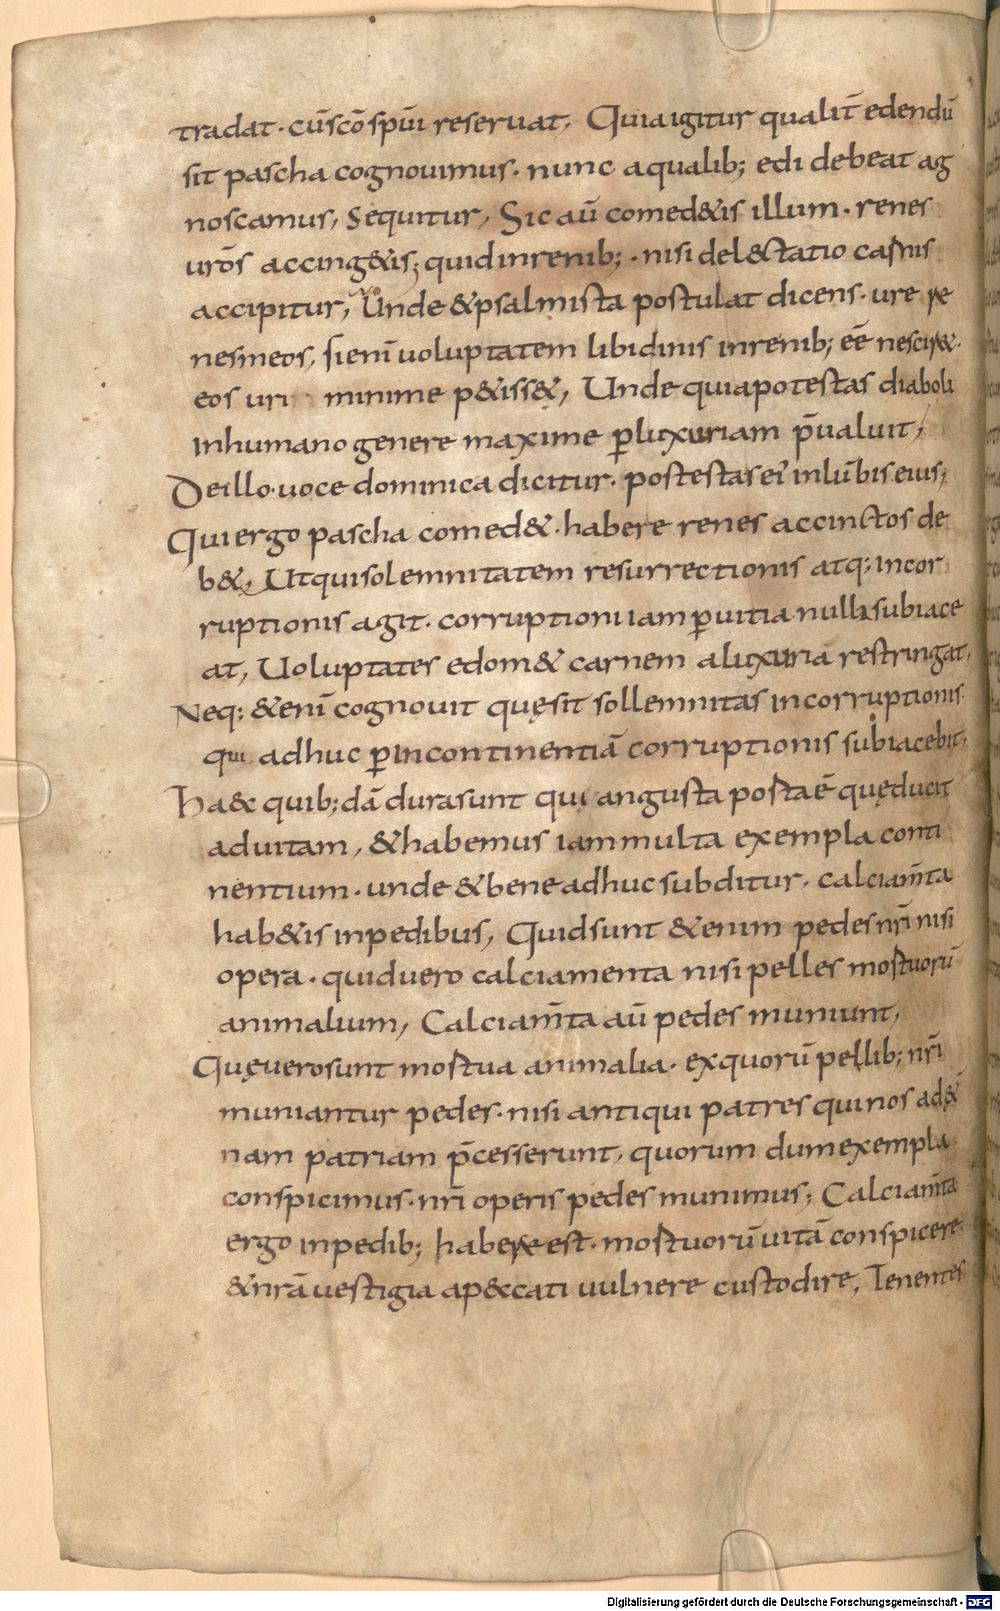 tradat · cūscōspiui reseruat, Quiaigitur qualit̄ edendū
sit pascha cognouimus · nunc aqualib; edi debeat ag
noscamus, Sequitur, Sic aū comed&is illum · renes
urōs accing&is; quidinrenib; · nisi del&tatio carnis
accipitur, Unde &psalmista postulat dicens · ure re
nesmeos, sienī uoluptatem libidinis inrenib; eē nescir&·
eos uri minime p&iss&, Unde quiapotestas diaboli
inhumano genere maxime ꝑluxuriam p̄ualuit,
Deillo uoce dominica dicitur · postestas ei inlūbis eius,
Qui ergo pascha comed& · habere renes accinctos de
b&, Utquisolemnitatem resurrectionis atq; incor
ruptionis agit · corruptioni iam ꝑuitia nulla subiace
at, Uoluptates edom& carnem aluxuria restringat,
Neq; &enī cognouit quęsit sollemnitas incorruptionis·
qui adhuc ꝑincontinentiā corruptionis subiacebit,
Haec quib;dā durasunt qui angusta portaē quęducit
aduitam, &habemus iammulta exempla conti
nentium · unde &bene adhuc subditur · calciam̄ta
hab&is inpedibus, Quidsunt &enim pedes nr̄i nisi
opera · quiduero calciamenta nisi pelles mortuorū
animalium, Calciam̄ta aū pedes muniunt,
Quęuerosunt mortua animalia · exquorū pellib; nr̄i
muniantur pedes · nisi antiqui patres quinos ad&
nam patriam p̄cesserunt, quorum dumexempla
conspicimus · nr̄i operis pedes munimus; Calciam̄ta
ergo inpedib; habere est · mortuorū uitā conspicere·
&nr̄a uestigia ap&cati uulnere custodire, Tenentes
Digitalisierung gefördert durch die Deutsche Forschungsgemeinschaft - DFG